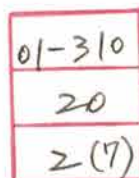 01-310
20
2(7)